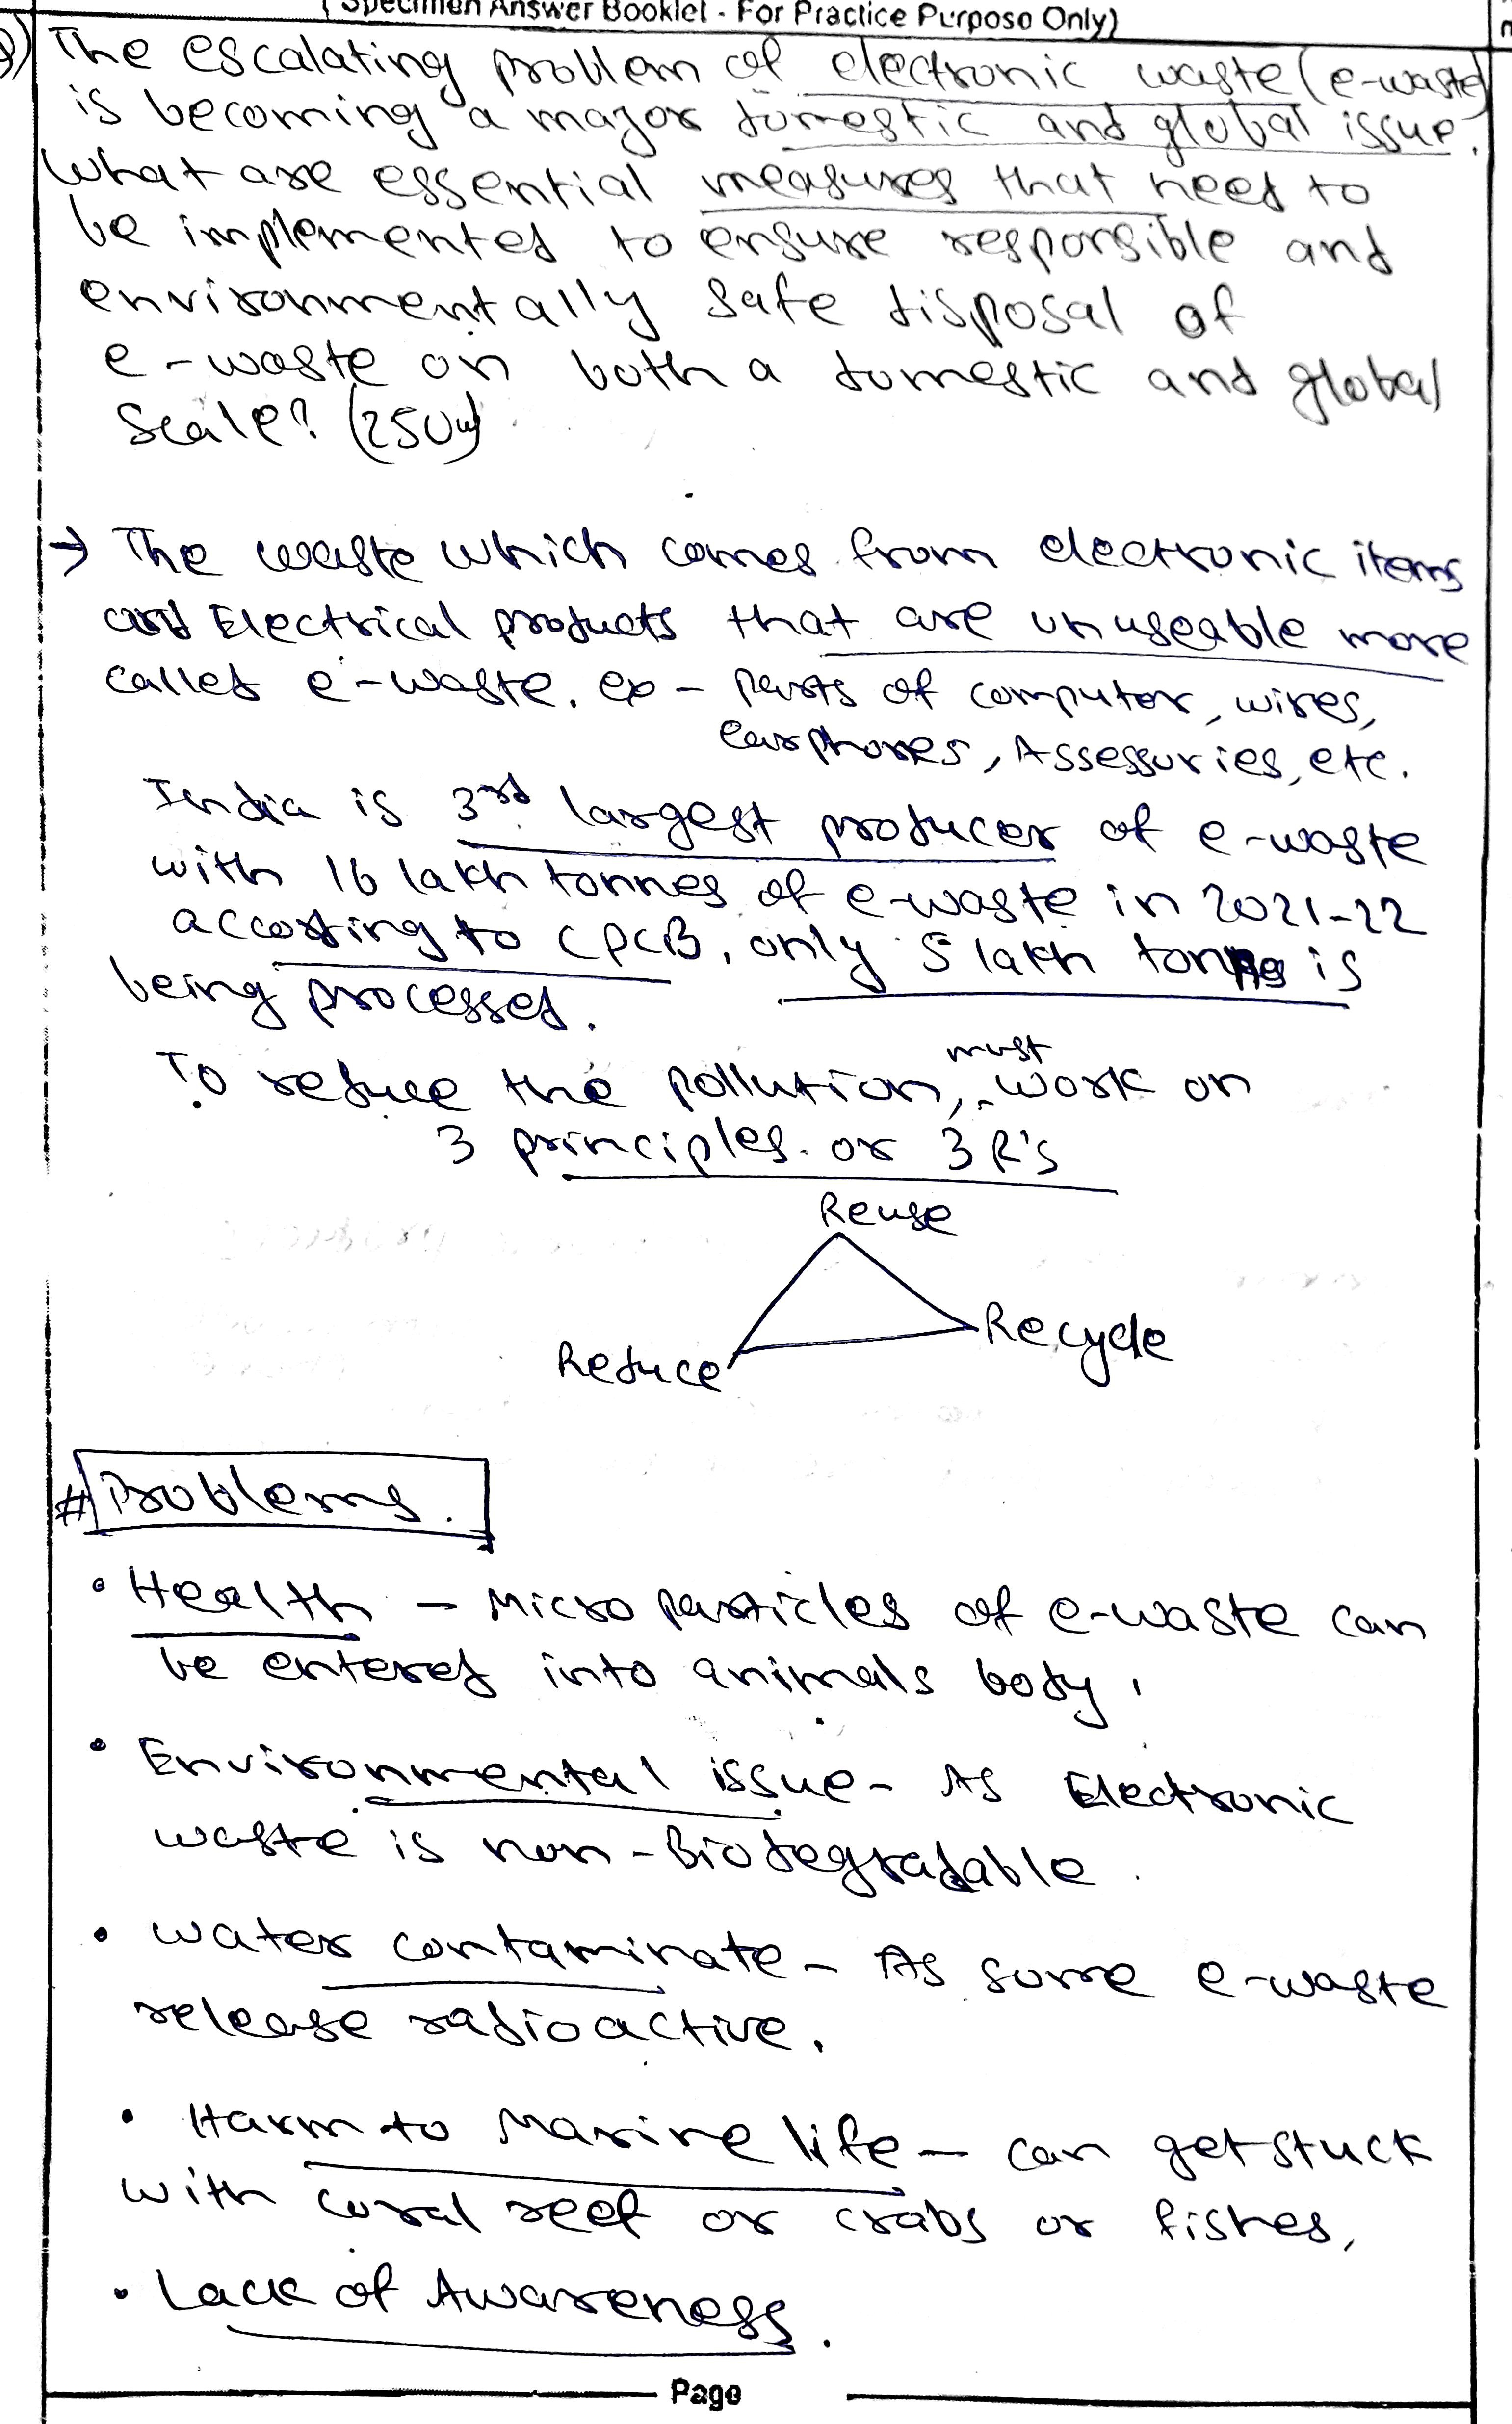 ( Specimen Answer Booklet - For Practice Purpose Only)
The escalating problem of electronic waste (e-waste)
is becoming a major domestic and global issue.
What are essential measures that need to
be implemented to ensure responsible and
environmentally safe disposal of
e-waste on both a domestic and global
Scale? (250w)
→ The waste which comes from electronic items
and Electrical products that are unuseable more
called e-waste. ex - parts of computer, wires,
earphones, Assessories, etc.
India is 3rd largest producer of e-waste
with 16 lakh tonnes of e-waste in 2021-22
according to CPCB, only 5 lakh tonnes is
being processed.
To reduce the pollution, must work on
3 principles. or 3 R's
Reuse
Recycle
Reduce
# Problems.
• Health - Micro particles of e-waste can
be entered into animals body.
• Environmental issue - As Electronic
waste is non-Biodegradable.
• water contaminate - As some e-waste
release radioactive.
• Harm to Marine life - can get stuck
with coral reef or crabs or fishes,
• Lack of Awareness.
Page